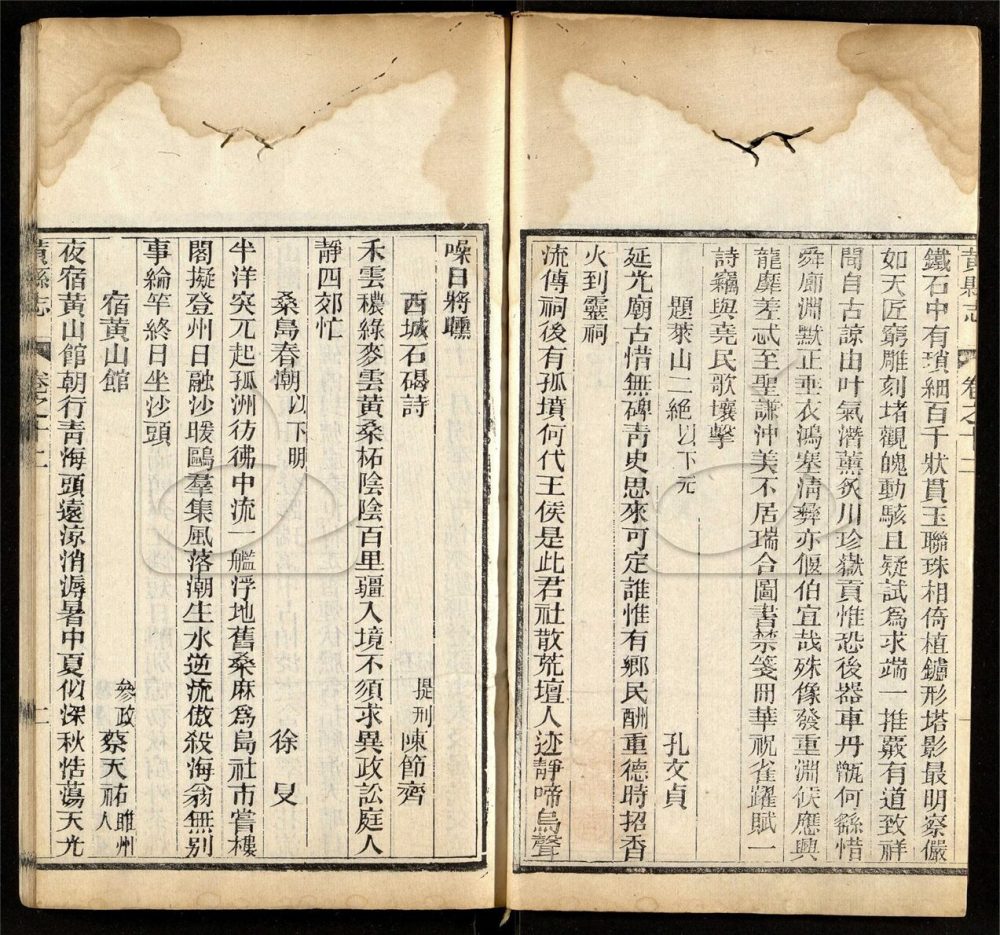 黃縣志　卷之十二
鐵石中有瑣細百千狀貫玉聯珠相倚植鏽形塔影最明察儼
如天匠窮雕刻堵觀魄動駭且疑試爲求端一推覈有道致祥
聞自古諒由叶氣潛薰炙川珍嶽貢惟恐後器車丹甑何繇惜
舜廊淵默正垂衣鴻塞淸彝亦偃伯宜哉殊像發重淵候應興
龍靡差忒至聖謙沖美不居瑞合圖書禁箋冊華祝雀躍賦一
詩竊與堯民歌壤擊
題萊山二絕以下元　孔文貞
延光廟古惜無碑靑史思來可定誰惟有鄉民酬重德時招香
火到靈祠
流傳祠後有孤墳何代王侯是此君社散荒壇人迹靜啼烏聲
噪日將曛
西城石碣詩　提刑陳節齊
禾雲穠綠麥雲黃桑柘陰陰百里疆入境不須求異政訟庭人
靜四郊忙
桑島春潮以下明　徐旻
半洋突兀起孤洲彷彿中流一艦浮地舊桑麻爲島社市嘗樓
閣擬登州日融沙暖鷗羣集風落潮生水逆流傲殺海翁無別
事綸竿終日坐沙頭
宿黃山館　參政蔡天祐睢州人
夜宿黃山館朝行靑海頭遠涼消溽暑中夏似深秋浩蕩天光
黃縣志　卷之十二　二